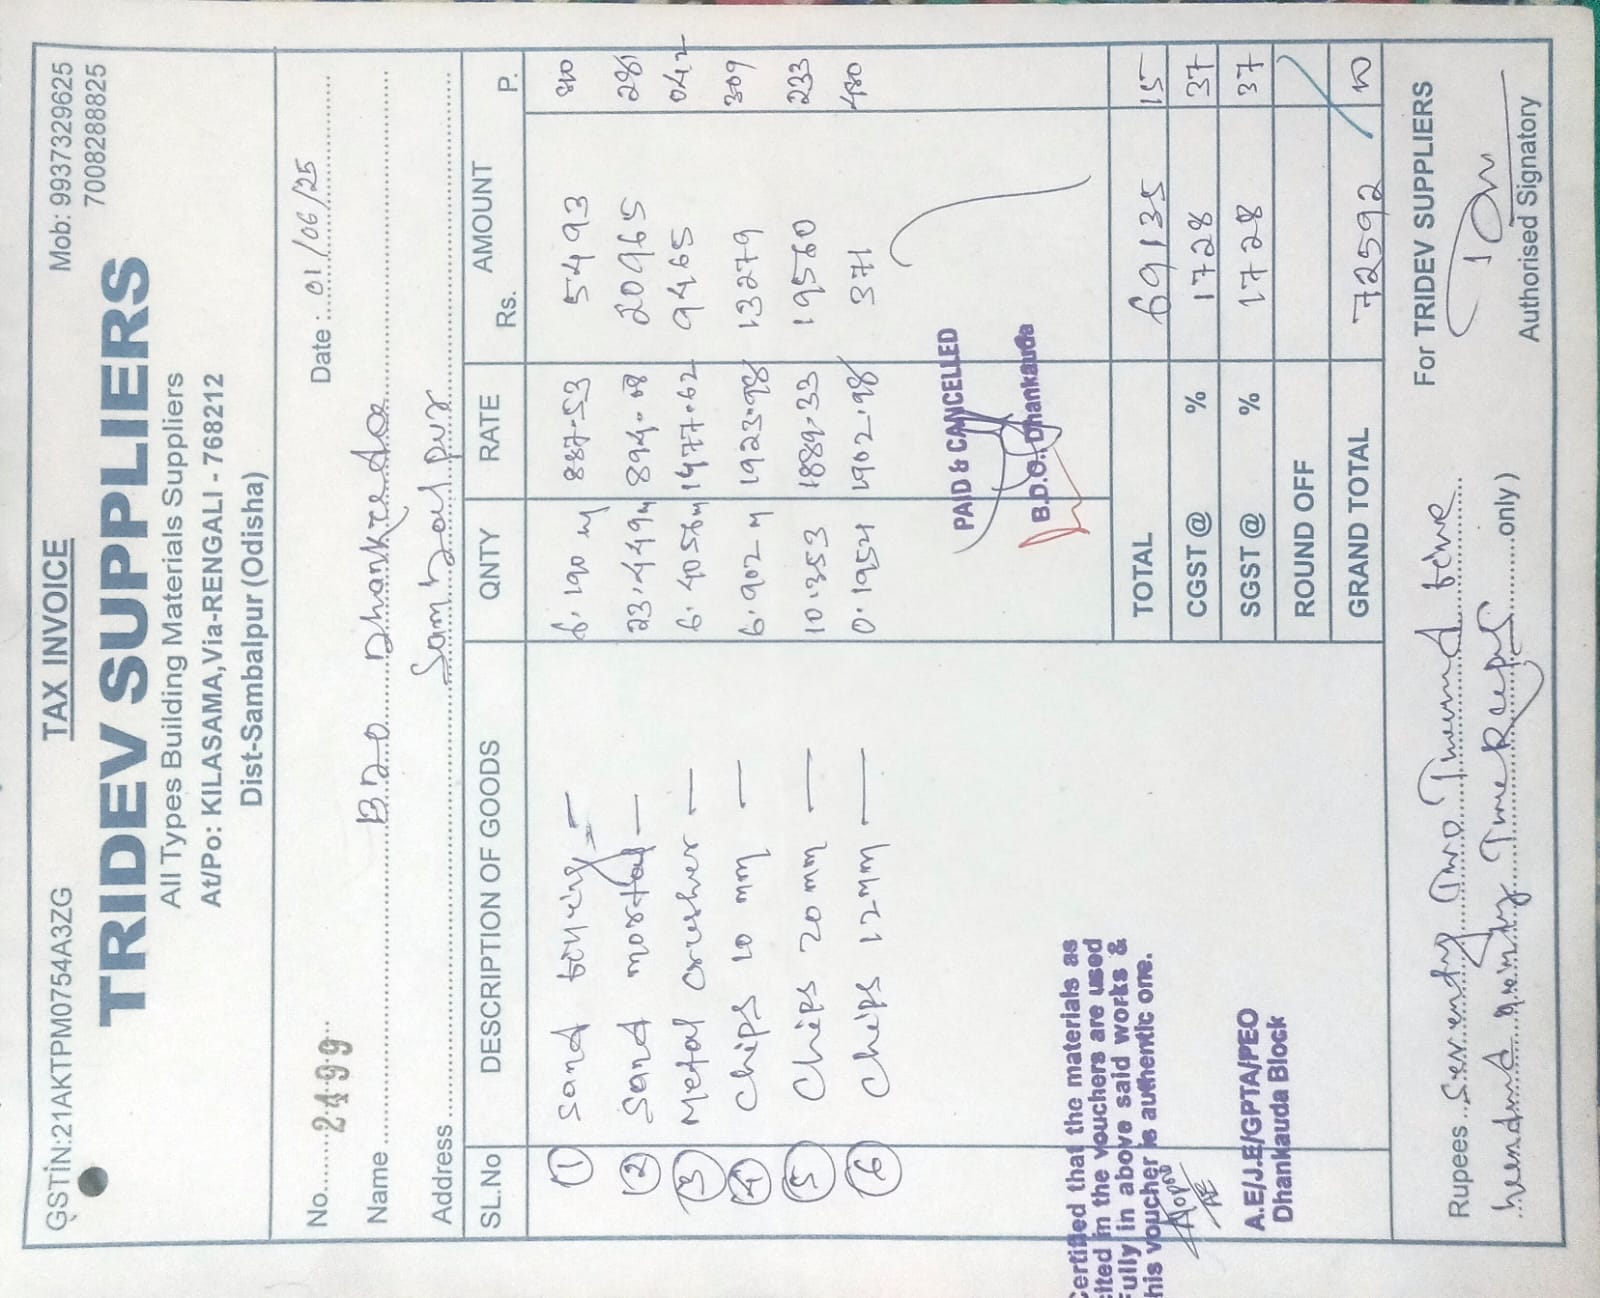 GSTIN:21AKTPM0754A3ZG TAX INVOICE Mob: 9937329625
7008288825
TRIDEV SUPPLIERS
All Types Building Materials Suppliers
At/Po: KILASAMA,Via-RENGALI - 768212
Dist-Sambalpur (Odisha)
No. 2499 Date : 01/06/25
Name BDO Dhankauda
Address Sambalpur
SL.No DESCRIPTION OF GOODS QNTY RATE AMOUNT
Rs. P.
1 Sand filling 6.190 M 887.53 5493 810
2 Sand mortar 23.449 M 894.08 20965 281
3 Metal crusher 6.4056 M 1477.62 9465 042
4 Chips 10 mm 6.902 M 1923.98 13279 309
5 Chips 20 mm 10.353 1889.33 19560 233
6 Chips 12 mm 0.195 M 1902.98 371 480
PAID & CANCELLED
B.D.O. Dhankauda
Certified that the materials as
cited in the vouchers are used
Fully in above said works &
his voucher is authentic one.
AE
A.E/J.E/GPTA/PEO
Dhankauda Block
TOTAL 69135 15
CGST @ % 1728 37
SGST @ % 1728 37
ROUND OFF
GRAND TOTAL 72592
Rupees Seventy Two Thousand five
hundred ninety Two Rupees only)
For TRIDEV SUPPLIERS
Authorised Signatory